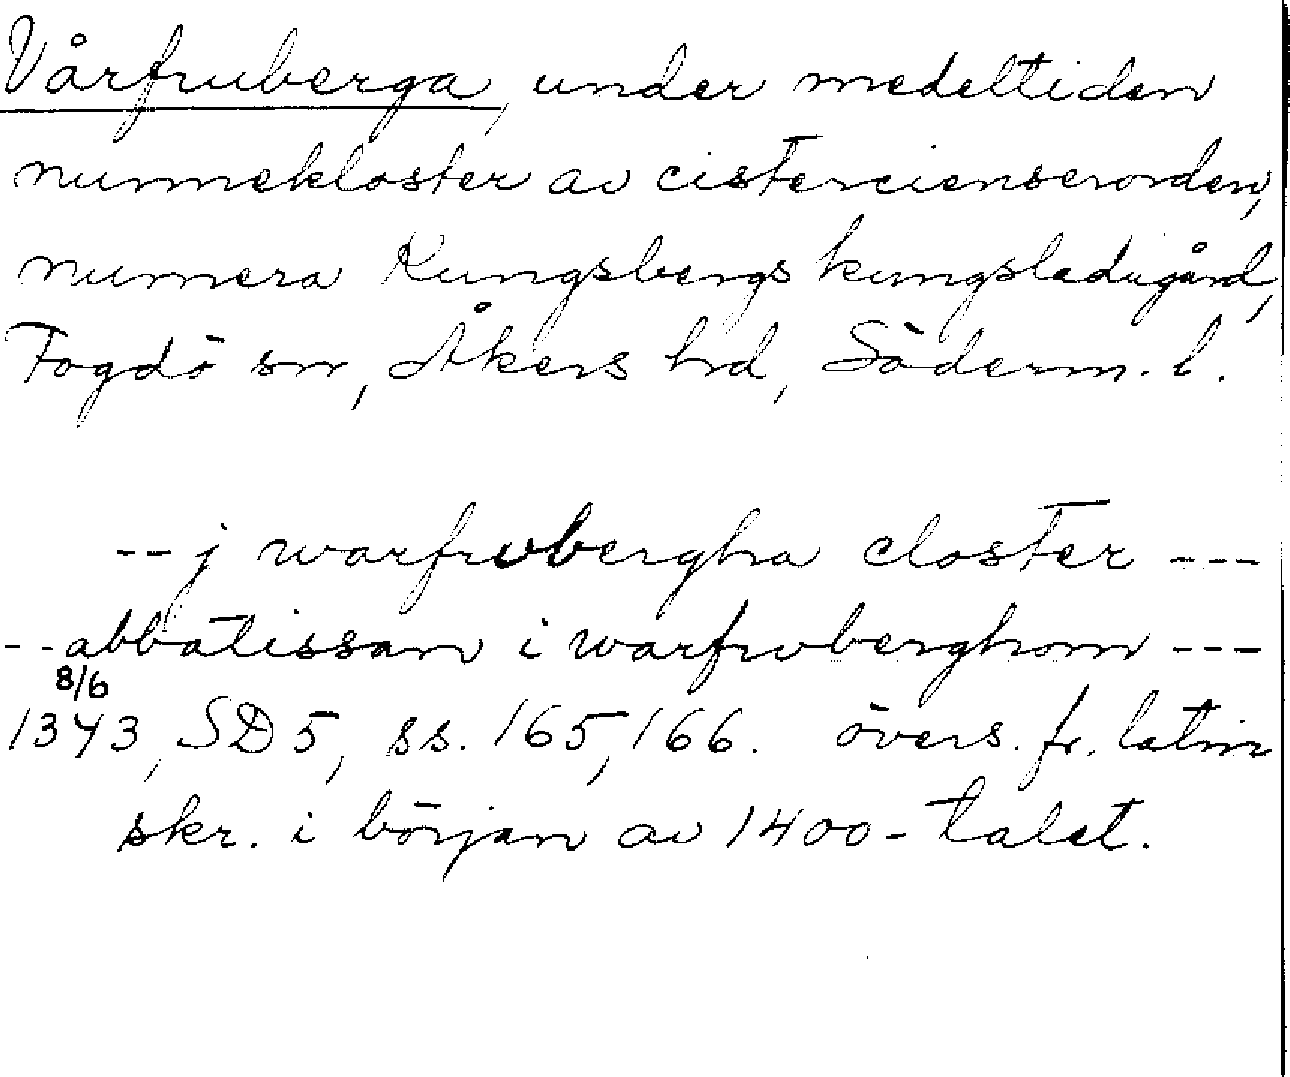 Vårfruberga, under medeltiden
nunnekloster av cistercienserorden,
numera Kungsbergs kungsladugård,
Fogdö sn, Åkers hd, Söderm. l.
-- j warfrvbergha closter ---
-- abbatissan i warfrvberghom ---
8/6
1343, SD 5, ss. 165, 166. övers. fr. latin
skr. i början av 1400-talet.